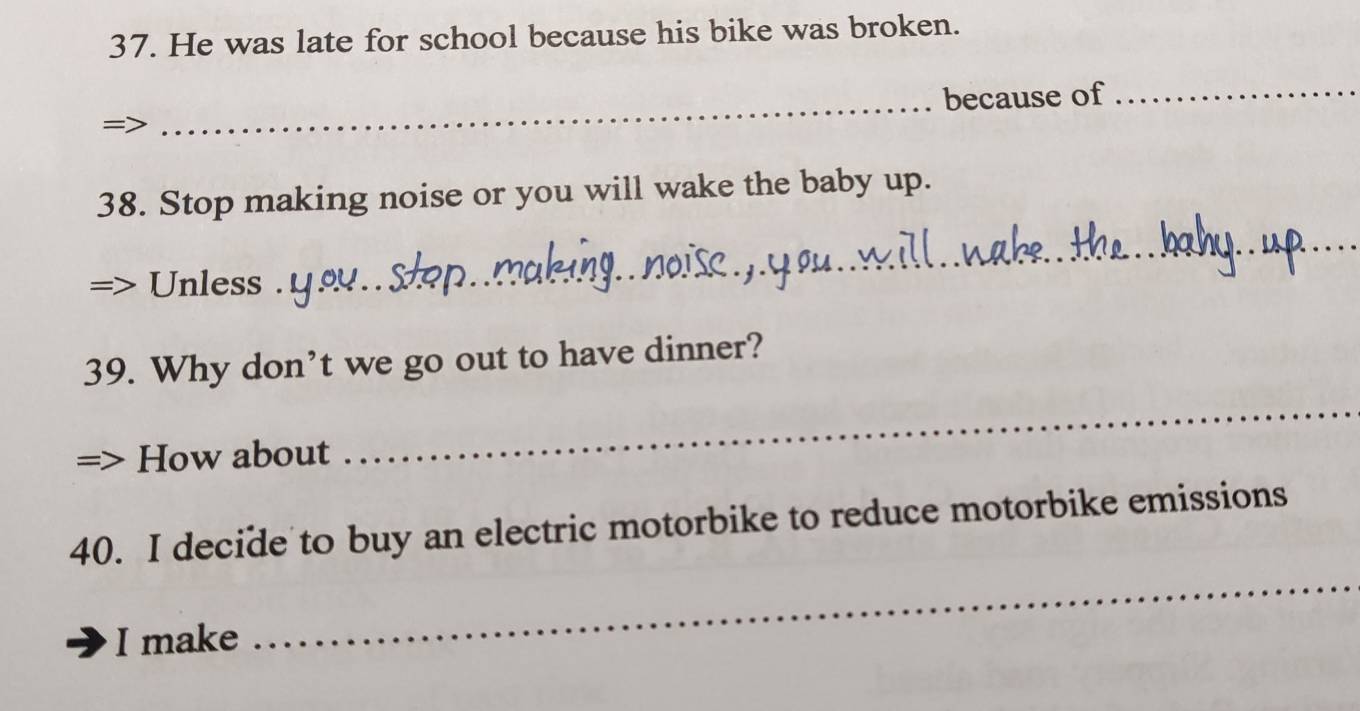 37. He was late for school because his bike was broken.
=> ........................ because of ........................
38. Stop making noise or you will wake the baby up.
=> Unless you stop making noise, you will wake the baby up
39. Why don't we go out to have dinner?
=> How about ........................
40. I decide to buy an electric motorbike to reduce motorbike emissions
➔ I make ........................